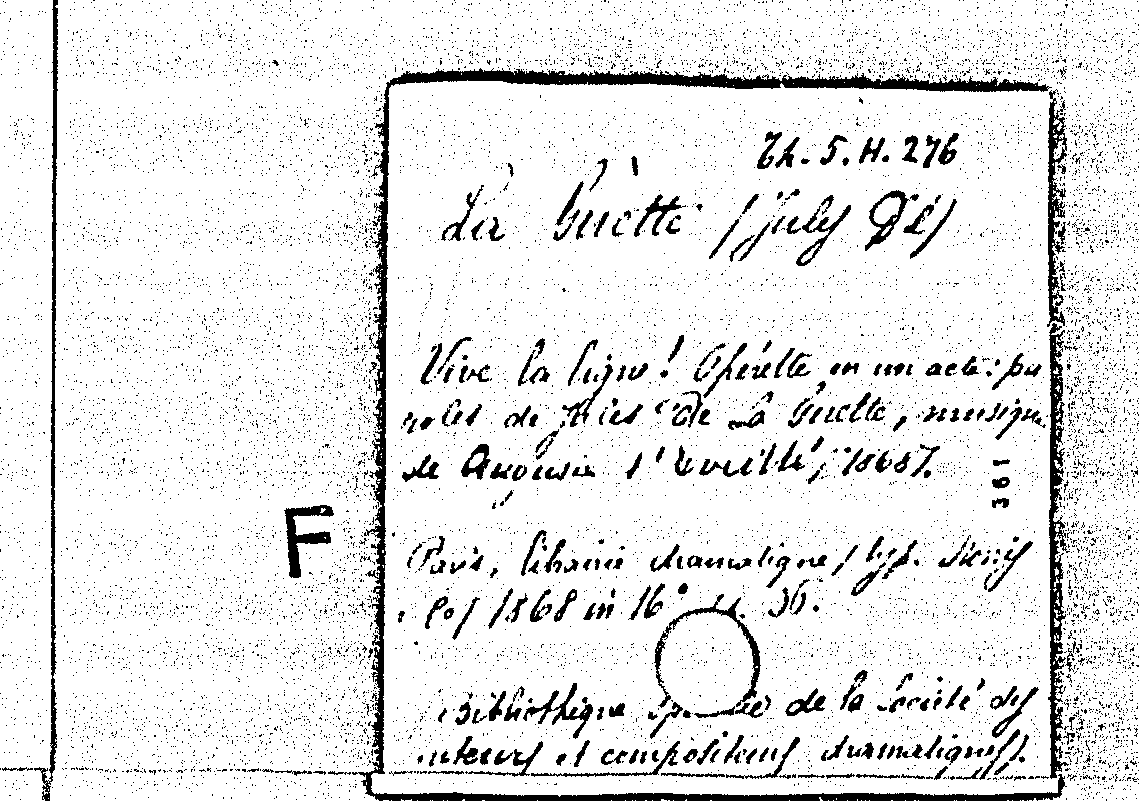 Th. 5. H. 276
La Guètte (July De)
Vive la ligne! Opérette en un acte: pa
roles de Jules De La Guette, musique
de Auguste l'Eveillé, 1868].
361
F
Paris, libairie dramatique / typ. Morris
1868 in 16° 36.
Bibliothèque spéciale de la Société des
auteurs et compositeurs dramatiques).